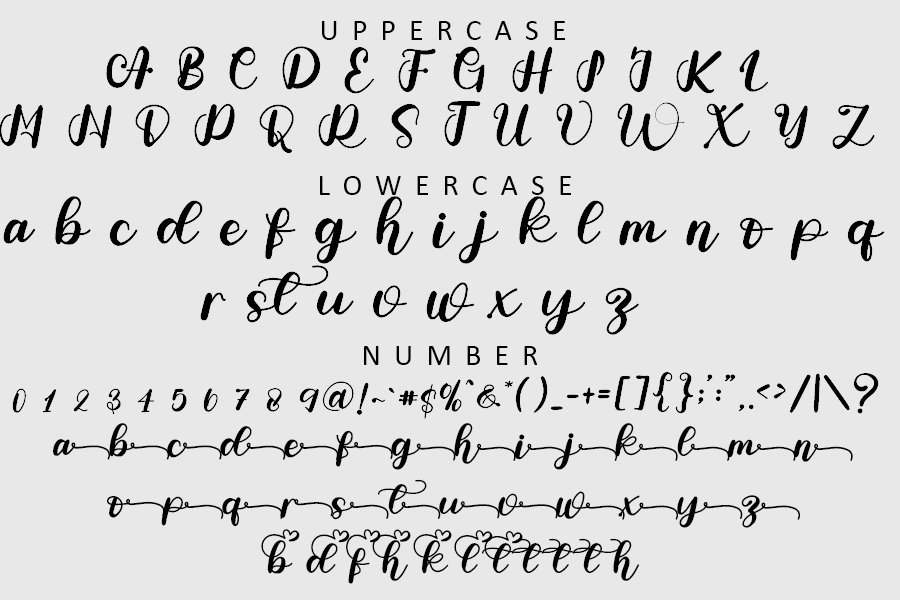 UPPERCASE
A B C D E F G H I J K L
M N O P Q R S T U V W X Y Z
LOWERCASE
a b c d e f g h i j k l m n o p q
r s t u v w x y z
NUMBER
0 1 2 3 4 5 6 7 8 9 @ ! ~ ` # $ % ^ & * ( ) _ - + = [ ] { } ; : ' " , . < > / | \ ?
a b c d e f g h i j k l m n
o p q r s t u v w x y z
b d f h k l t t t t h